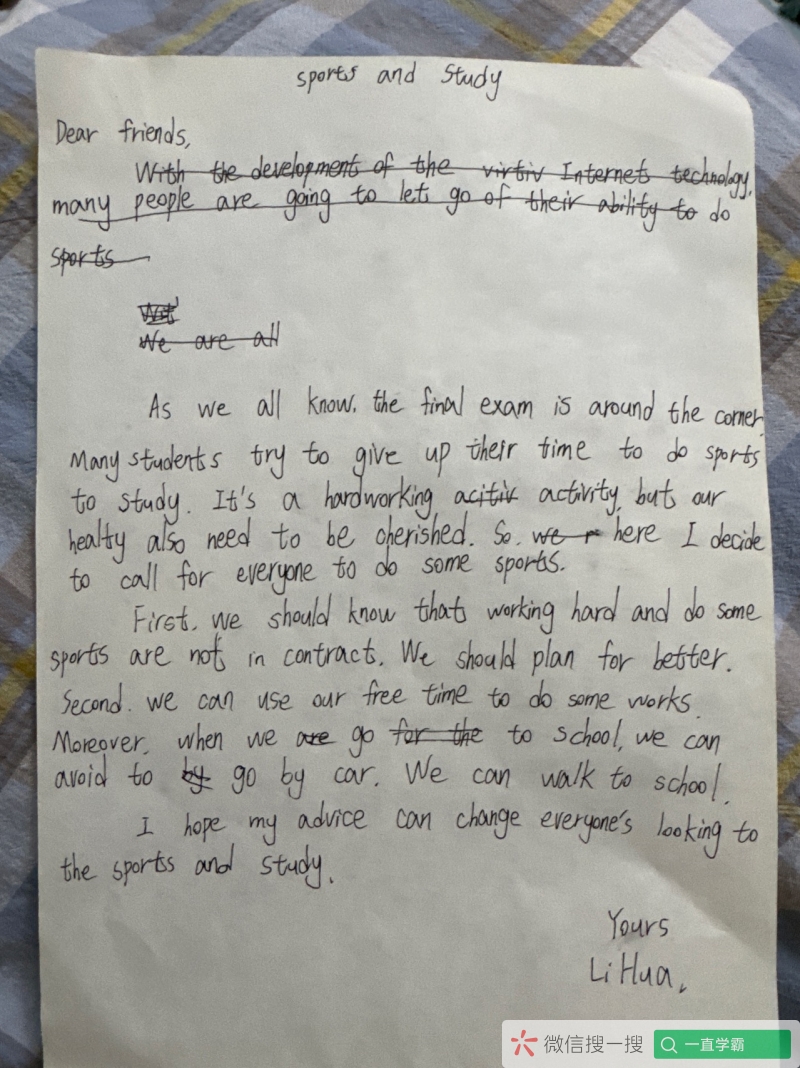 sports and Study
Dear friends,
With the development of the virtiv Internet technology,
many people are going to let go of their ability to do
sports
We are all
As we all know, the final exam is around the corner.
Many students try to give up their time to do sports
to study. It's a hardworking acitiv activity, but our
healty also need to be cherished. So, we r here I decide
to call for everyone to do some sports.
First, we should know that working hard and do some
sports are not in contract. We should plan for better.
Second, we can use our free time to do some works.
Moreover, when we are go for the to school, we can
avoid to by go by car. We can walk to school.
I hope my advice can change everyone's looking to
the sports and study.
Yours
Li Hua.
微信搜一搜 一直学霸